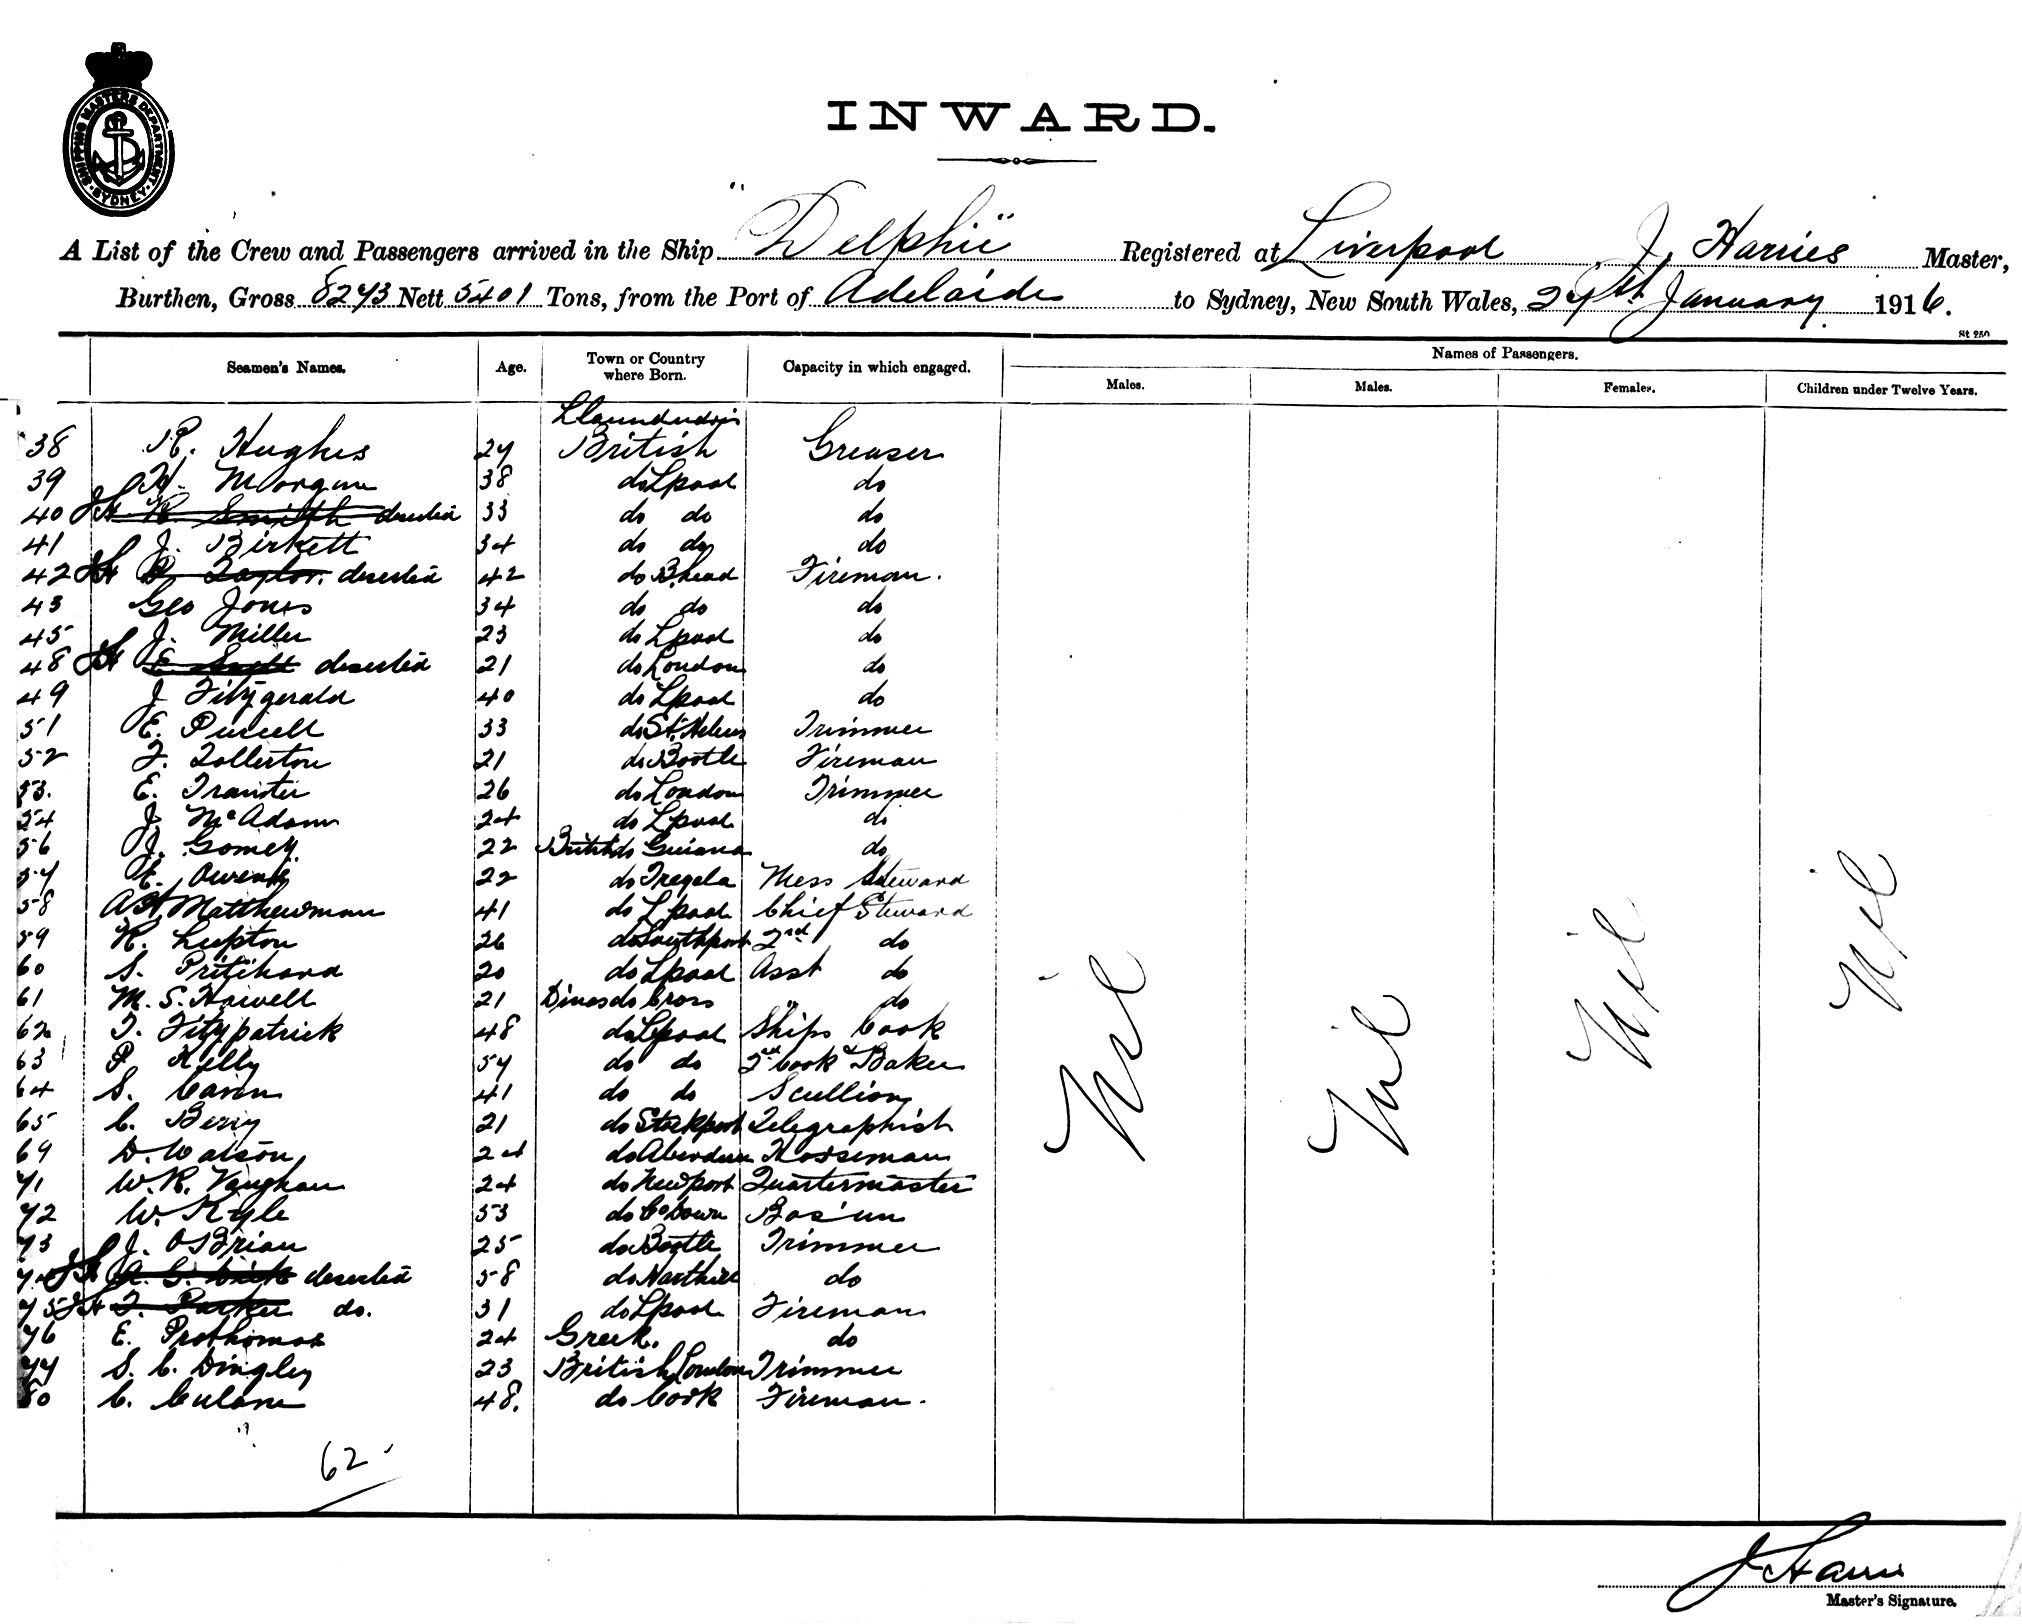 SHIPPING MASTERS DEPARTMENT. SYDNEY.
INWARD.
A List of the Crew and Passengers arrived in the Ship "Delphic" Registered at Liverpool, J. Harries Master,
Burthen, Gross 8273 Nett 5401 Tons, from the Port of Adelaide to Sydney, New South Wales, 27th January 1916.
St 250
Seamen's Names. Age. Town or Country where Born. Capacity in which engaged. Names of Passengers.
Males. Males. Females. Children under Twelve Years.
38 R. Hughes 27 British Greaser
39 H. Morgan 38 do Lpool do
40 JH R. Smith deserted 33 do do do
41 J. Birkett 34 do do do
42 JH Taylor. deserted 42 do B.head Fireman.
43 Geo Jones 34 do do do
45 J. Miller 23 do Lpool do
48 JH E. deserted 21 do London do
49 J Fitzgerald 40 do Lpool do
51 E. Purcell 33 do St. Helens Trimmer
52 F. Tollerton 21 do Bootle Fireman
53. E. Tranter 26 do London Trimmer
54 J McAdam 24 do Lpool do
56 J. Gomez 22 British do Guiana do
57 E. Owens 22 do Tregela Mess Steward
58 A H Matthewman 41 do Lpool Chief Steward
59 R. Lupton 26 do Southport 2nd do
60 S. Pritchard 20 do Lpool Asst do
61 M. S. Howell 21 Dinas do Cross " do
62 T. Fitzpatrick 48 do Lpool Ships Cook
63 P Kelly 57 do do 2nd Cook & Baker
64 S. Cavin 41 do do Scullion
65 C. Berry 21 do Stockport Telegraphist
69 D. Watson 24 do Aberdeen Horseman
71 W. R. Vaughan 24 do Newport Quartermaster
72 W. Kyle 53 do Co Down Bos'un
73 J. OBrian 25 do Bootle Trimmer
74 JH deserted 58 do do
75 JH T. Parker do. 31 do Lpool Fireman
76 E. Prothomas 24 Greek. do
77 S. C. Dingley 23 British London Trimmer
80 C. Culane 48. do Cork Fireman.
Nil Nil Nil Nil
62
J Harries
Master's Signature.